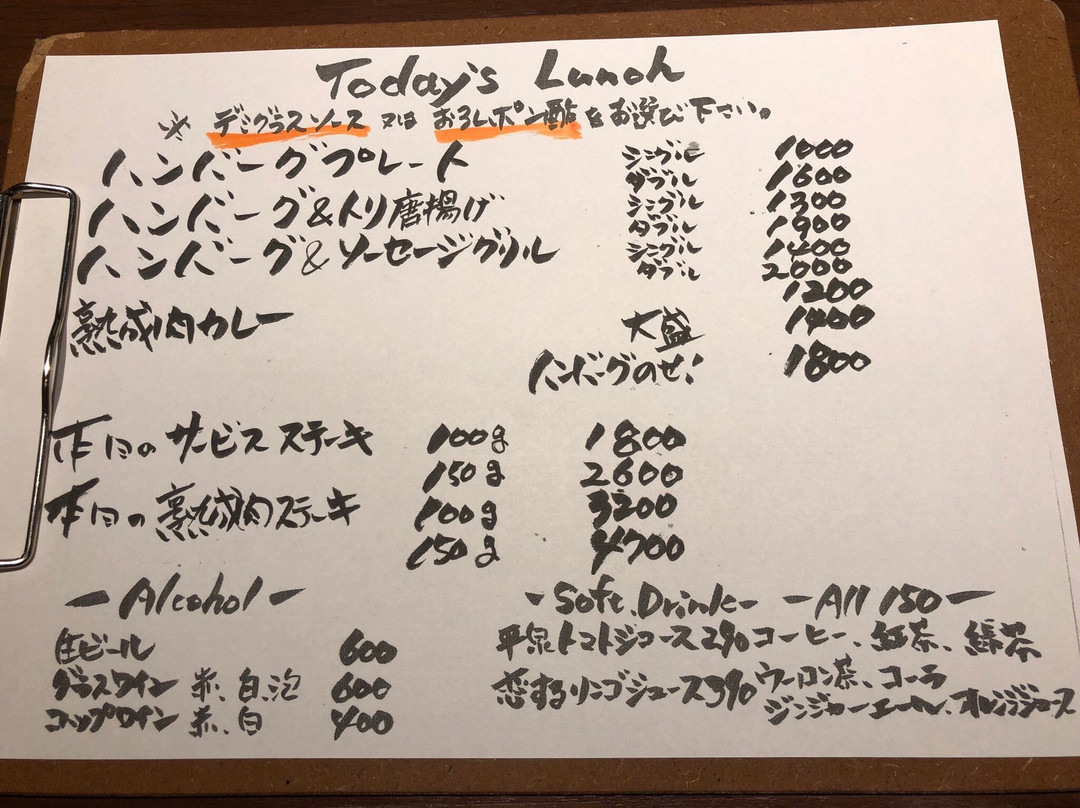 Today's Lunch
※ デミグラスソース 又は おろしポン酢 をお選び下さい。
ハンバーグプレート シングル 1000
ダブル 1600
ハンバーグ&トリ唐揚げ シングル 1300
ダブル 1900
ハンバーグ&ソーセージグリル シングル 1400
ダブル 2000
熟成肉カレー 1200
大盛 1400
ハンバーグのせ! 1800
本日のサービスステーキ 100g 1800
150g 2600
本日の熟成肉ステーキ 100g 3200
150g 4700
ーAlcoholー
生ビール 600
グラスワイン 赤、白、泡 600
コップワイン 赤、白 400
-Soft.Drink-
平泉トマトジュース 290
恋するリンゴジュース 390
ーAll 150ー
コーヒー、紅茶、緑茶
ウーロン茶、コーラ
ジンジャーエール、オレンジジュース